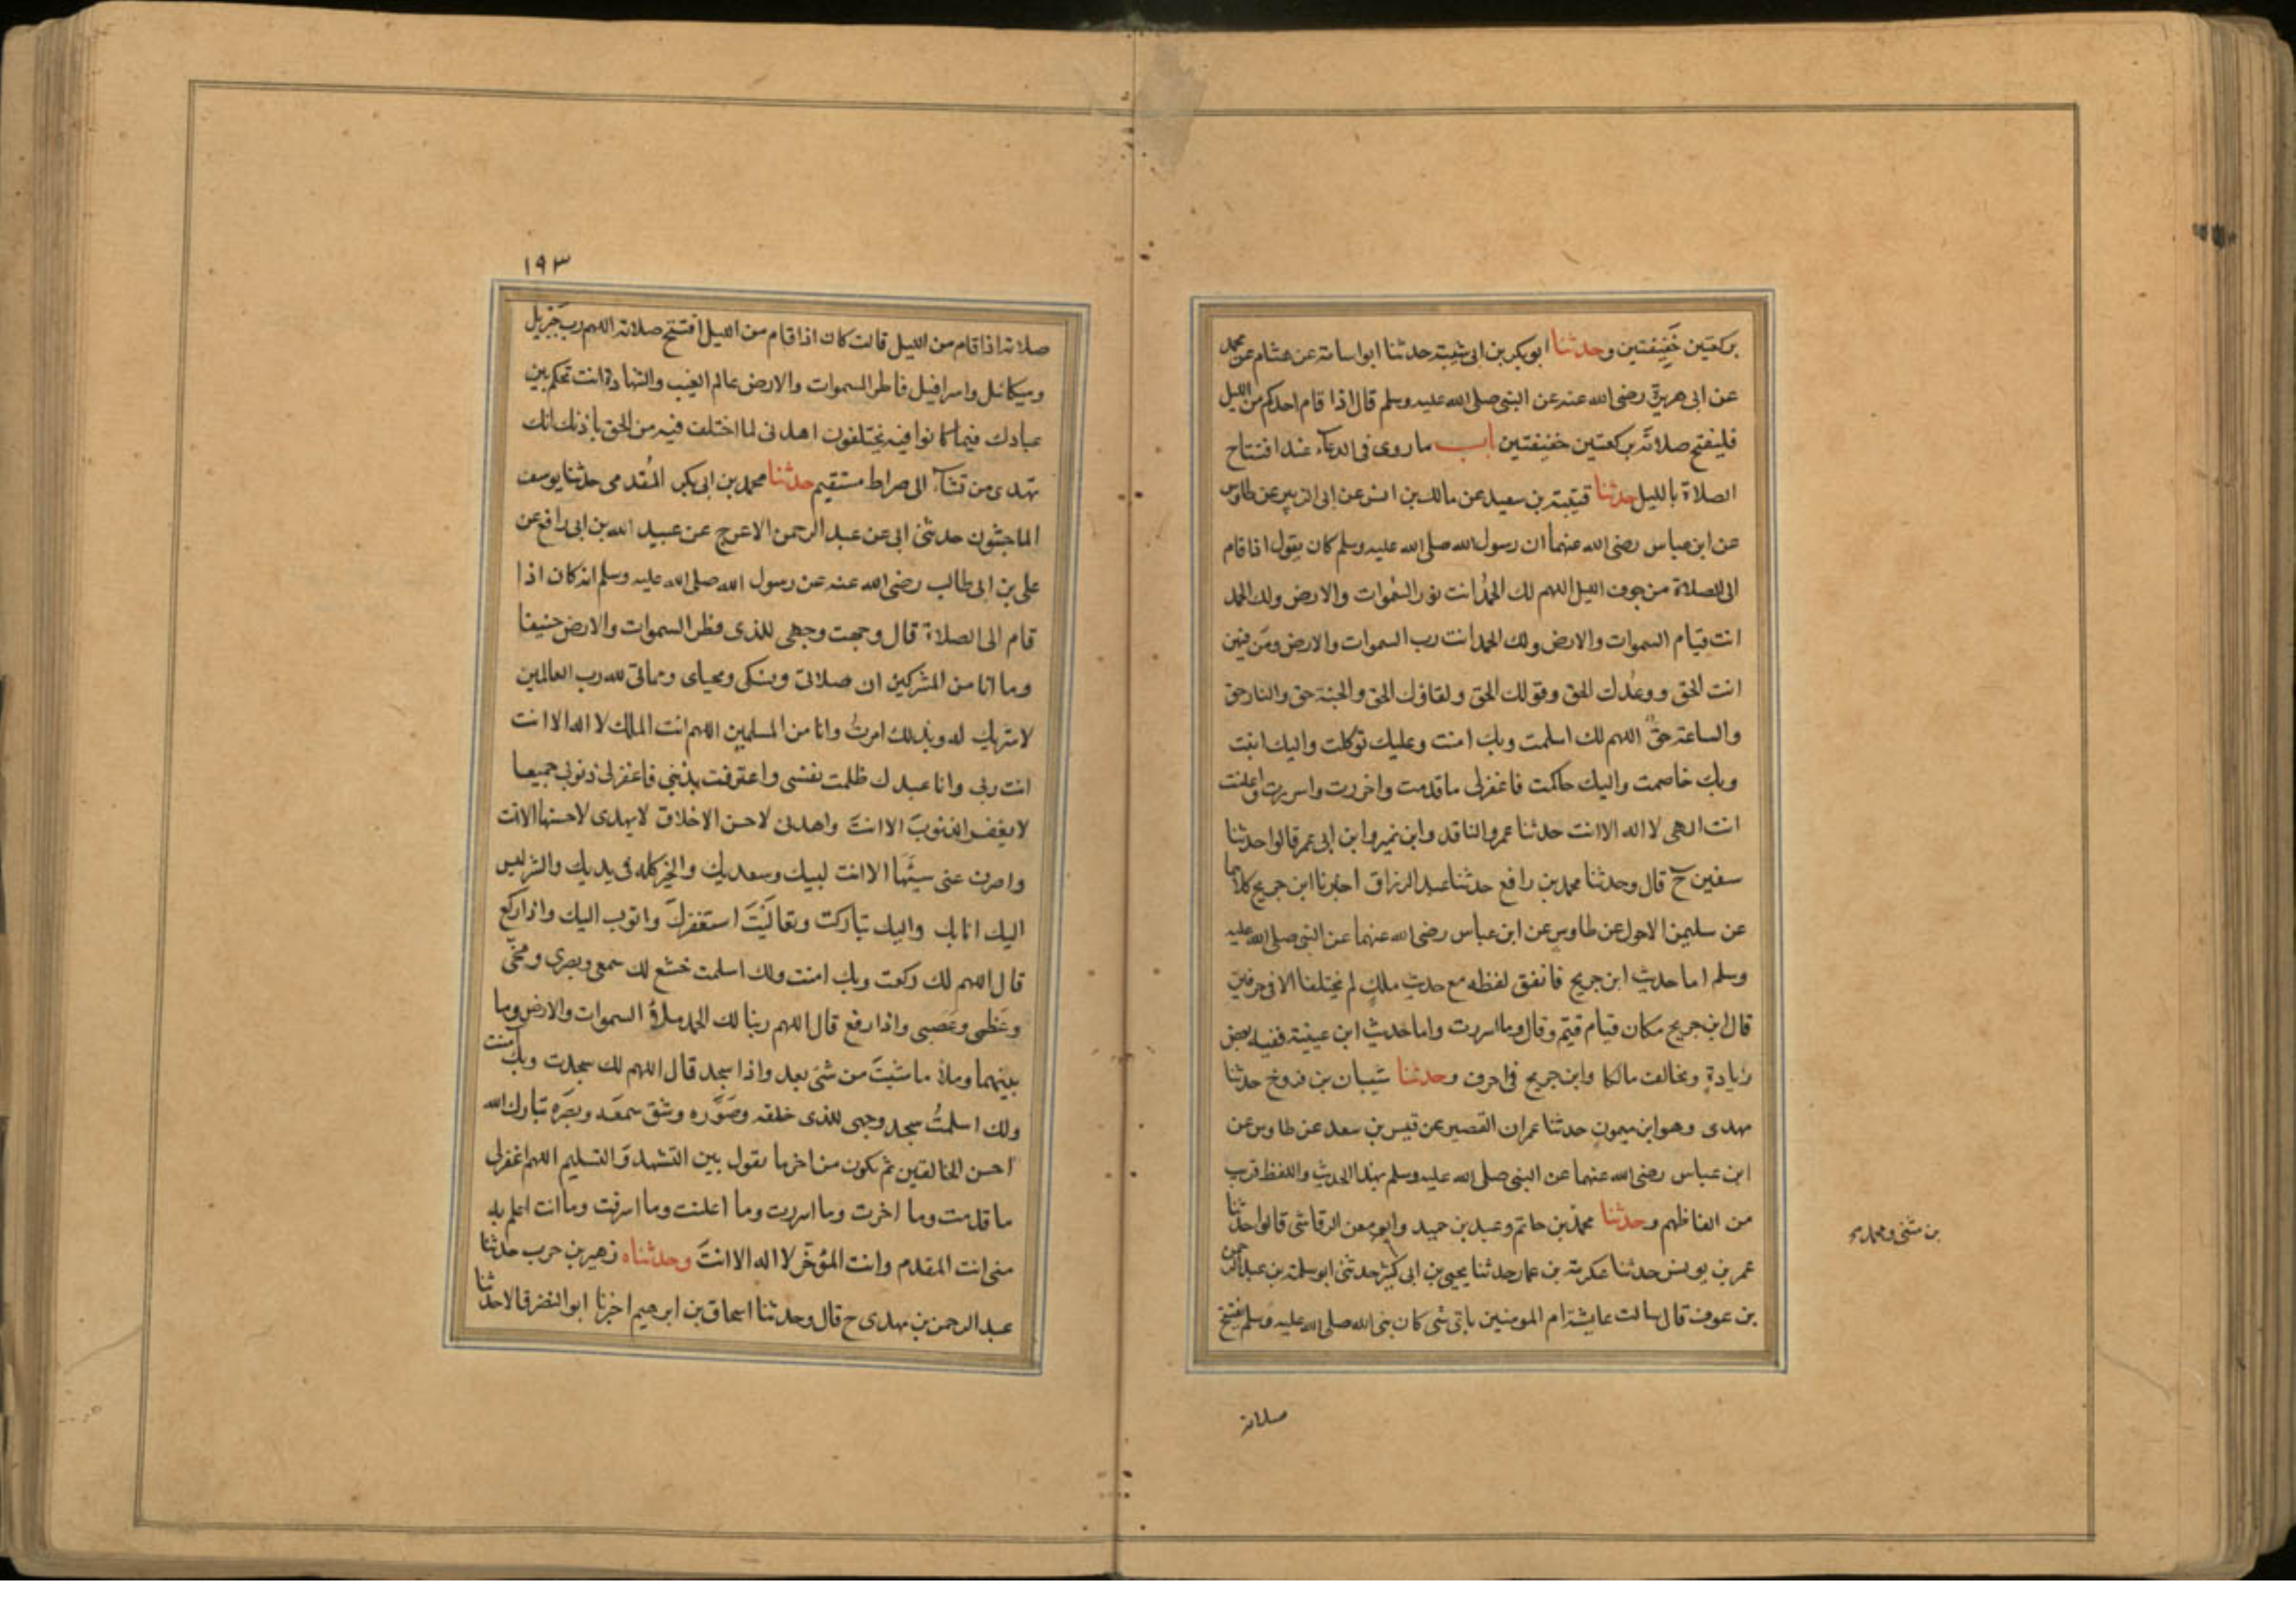 بركعتين خَفِيفتين وحدثنا ابو بكر بن ابى شيبة حدثنا ابو اسامة عن هشام عن محمد
عن ابى هريرة رضى الله عنه عن النبى صلى الله عليه وسلم قال اذا قام احدكم من الليل
فليفتح صلاته بركعتين خفيفتين باب ما روى فى الدعاء عند افتتاح
الصلاة بالليل حدثنا قتيبة بن سعيد عن مالك بن انس عن ابى الزبير عن طاوس
عن ابن عباس رضى الله عنهما ان رسول الله صلى الله عليه وسلم كان يقول اذا قام
الى الصلاة من جوف الليل اللهم لك الحمدُ انت نور السموات والارض ولك الحمد
انت قيام السموات والارض ولك الحمد انت رب السموات والارض ومَن فيهن
انت الحق ووعْدك الحق وقولك الحق ولقاؤك الحق والجنة حق والنار حق
والساعة حقٌ اللهم لك اسلمت وبك امنت وعليك توكلت واليك انبت
وبك خاصمت واليك حاكمت فاغفر لى ما قدمت واخرت واسررت واعلنت
انت الهى لا اله الا انت حدثنا عمرو الناقد وابن نمير وابن ابى عمر قالوا حدثنا
سفين ح قال وحدثنا محمد بن رافع حدثنا عبد الرزاق اخبرنا ابن جريج كلاهما
عن سليمن الاحول عن طاوس عن ابن عباس رضى الله عنهما عن النبى صلى الله عليه
وسلم اما حديث ابن جريج فاتفق لفظه مع حديث ملك لم يختلفا الا فى حرفين
قال ابن جريج مكان قيام قيّم وقال وما اسررت واما حديث ابن عيينة ففيه بعض
زيادةٍ ويخالف مالكا وابن جريج فى احرف وحدثنا شيبان بن فروخ حدثنا
مهدى وهو ابن ميمون حدثنا عمران القصير عن قيس بن سعد عن طاوس عن
ابن عباس رضى الله عنهما عن النبى صلى الله عليه وسلم بهذا الحديث واللفظ قريب
من الفاظهم وحدثنا محمد بن حاتم وعبد بن حميد وابو معن الرقاشى قالوا حدثنا
عمر بن يونس حدثنا عكرمة بن عمار حدثنا يحيى بن ابى كثير حدثنى ابو سلمة بن عبد الرحمن
بن عوف قال سالت عايشة ام المومنين باى شى كان نبى الله صلى الله عليه وسلم يفتتح
بن مثنى ومحمد
صلاته
١٩٣
صلاته اذا قام من الليل قالت كان اذا قام من الليل افتتح صلاته اللهم رب جبريل
وميكائل واسرافيل فاطر السموات والارض عالم الغيب والشهادة انت تحكم بين
عبادك فيما كانوا فيه يختلفون اهدنى لما اختلف فيه من الحق باذنك انك
تهدى من تشاء الى صراط مستقيم حدثنا محمد بن ابى بكر المُقدمى حدثنا يوسف
الماجشون حدثنى ابى عن عبد الرحمن الاعرج عن عبيد الله بن ابى رافع عن
على بن ابى طالب رضى الله عنه عن رسول الله صلى الله عليه وسلم انه كان اذا
قام الى الصلاة قال وجهت وجهى للذى فطر السموات والارض حنيفا
وما انا من المشركين ان صلاتى ونسكى ومحياى ومماتى لله رب العالمين
لا شريك له وبذلك امرتُ وانا من المسلمين اللهم انت الملك لا اله الا انت
انت ربى وانا عبدك ظلمت نفسى واعترفت بذنبى فاغفر لى ذنوبى جميعا
لا يغفر الذنوبَ الا انتَ واهدنى لاحسن الاخلاق لا يهدى لاحسنها الا انت
واصرف عنى سيئها الا انت لبيك وسعديك والخير كله فى يديك والشر ليس
اليك انا بك واليك تباركت وتعاليتَ استغفركَ واتوب اليك واذا ركع
قال اللهم لك ركعت وبك امنت ولك اسلمت خشع لك سمعى وبصرى ومخّى
وعَظمى وعَصبى واذا رفع قال اللهم ربنا لك الحمد ملأ السموات والارض وما
بينهما وملأ ما شئتَ من شئ بعد واذا سجد قال اللهم لك سجدت وبك امنت
ولك اسلمتُ سجد وجهى للذى خلقه وصَوَّره وشق سمعَه وبصَره تبارك الله
احسن الخالقين ثم يكون من اخر ما يقول بين التشهد وَالتسليم اللهم اغفر لى
ما قدمت وما اخرت وما اسررت وما اعلنت وما اسرفت وما انت اعلم به
منى انت المقدم وانت المؤخّر لا اله الا انتَ وحدثناه زهير بن حرب حدثنا
عبد الرحمن بن مهدى ح قال وحدثنا اسحاق بن ابرهيم اخبرنا ابو النضر قالا حدثنا